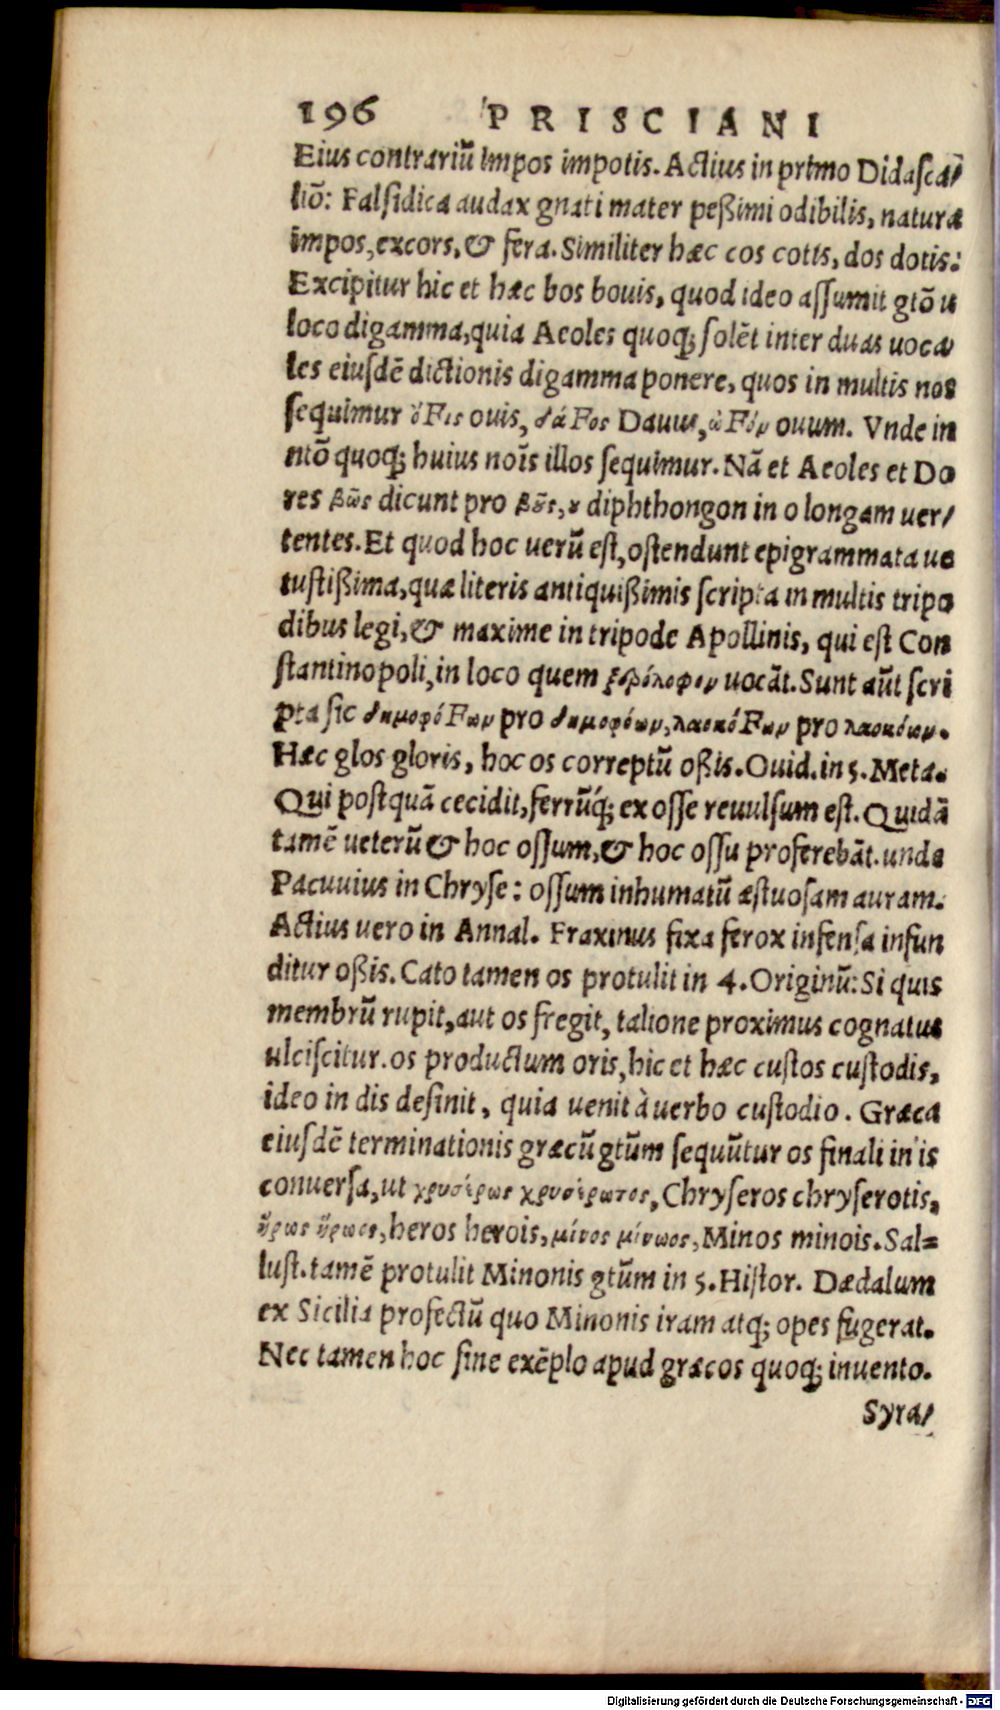 196 PRISCIANI
Eius contrariū impos impotis. Actius in primo Didasca/
liō: Falsidica audax gnati mater peßimi odibilis, natura
impos, excors, & fera. Similiter hæc cos cotis, dos dotis:
Excipitur hic et hæc bos bouis, quod ideo assumit gtō u
loco digamma, quia Aeoles quoq; solēt inter duas uoca
les eiusdē dictionis digamma ponere, quos in multis nos
sequimur ὄFις ouis, δάFος Dauus, ὠFόν ouum. Vnde in
ntō quoq; huius noīs illos sequimur. Nā et Aeoles et Do
res βῶς dicunt pro βοῦς, ου diphthongon in o longam uer/
tentes. Et quod hoc uerū est, ostendunt epigrammata ue
tustißima, quæ literis antiquißimis scripta in multis tripo
dibus legi, & maxime in tripode Apollinis, qui est Con
stantinopoli, in loco quem ξερόλοφον uocāt. Sunt aūt scri
pta sic δημοφόFων pro δημοφόων, λαοκόFων pro λαοκόων.
Hæc glos gloris, hoc os correptū oßis. Ouid. in 5. Meta.
Qui postquā cecidit, ferrūq́; ex osse reuulsum est. Quidā
tamē ueterū & hoc ossum, & hoc ossu proferebāt. unde
Pacuuius in Chryse: ossum inhumatū æstuosam auram.
Actius uero in Annal. Fraxinus fixa ferox infensa infun
ditur oßis. Cato tamen os protulit in 4. Originū: Si quis
membrū rupit, aut os fregit, talione proximus cognatus
ulciscitur. os productum oris, hic et hæc custos custodis,
ideo in dis desinit, quia uenit à uerbo custodio. Græca
eiusdē terminationis græcū gtūm sequūtur os finali in is
conuersa, ut χρυσέρως χρυσέρωτος, Chryseros chryserotis,
ἥρως ἥρωος, heros herois, μίνος μίνωος, Minos minois. Sal=
lust. tamē protulit Minonis gtūm in 5. Histor. Dædalum
ex Sicilia profectū quo Minonis iram atq; opes fugerat.
Nec tamen hoc sine exēplo apud græcos quoq; inuento.
Syra/
Digitalisierung gefördert durch die Deutsche Forschungsgemeinschaft - DFG